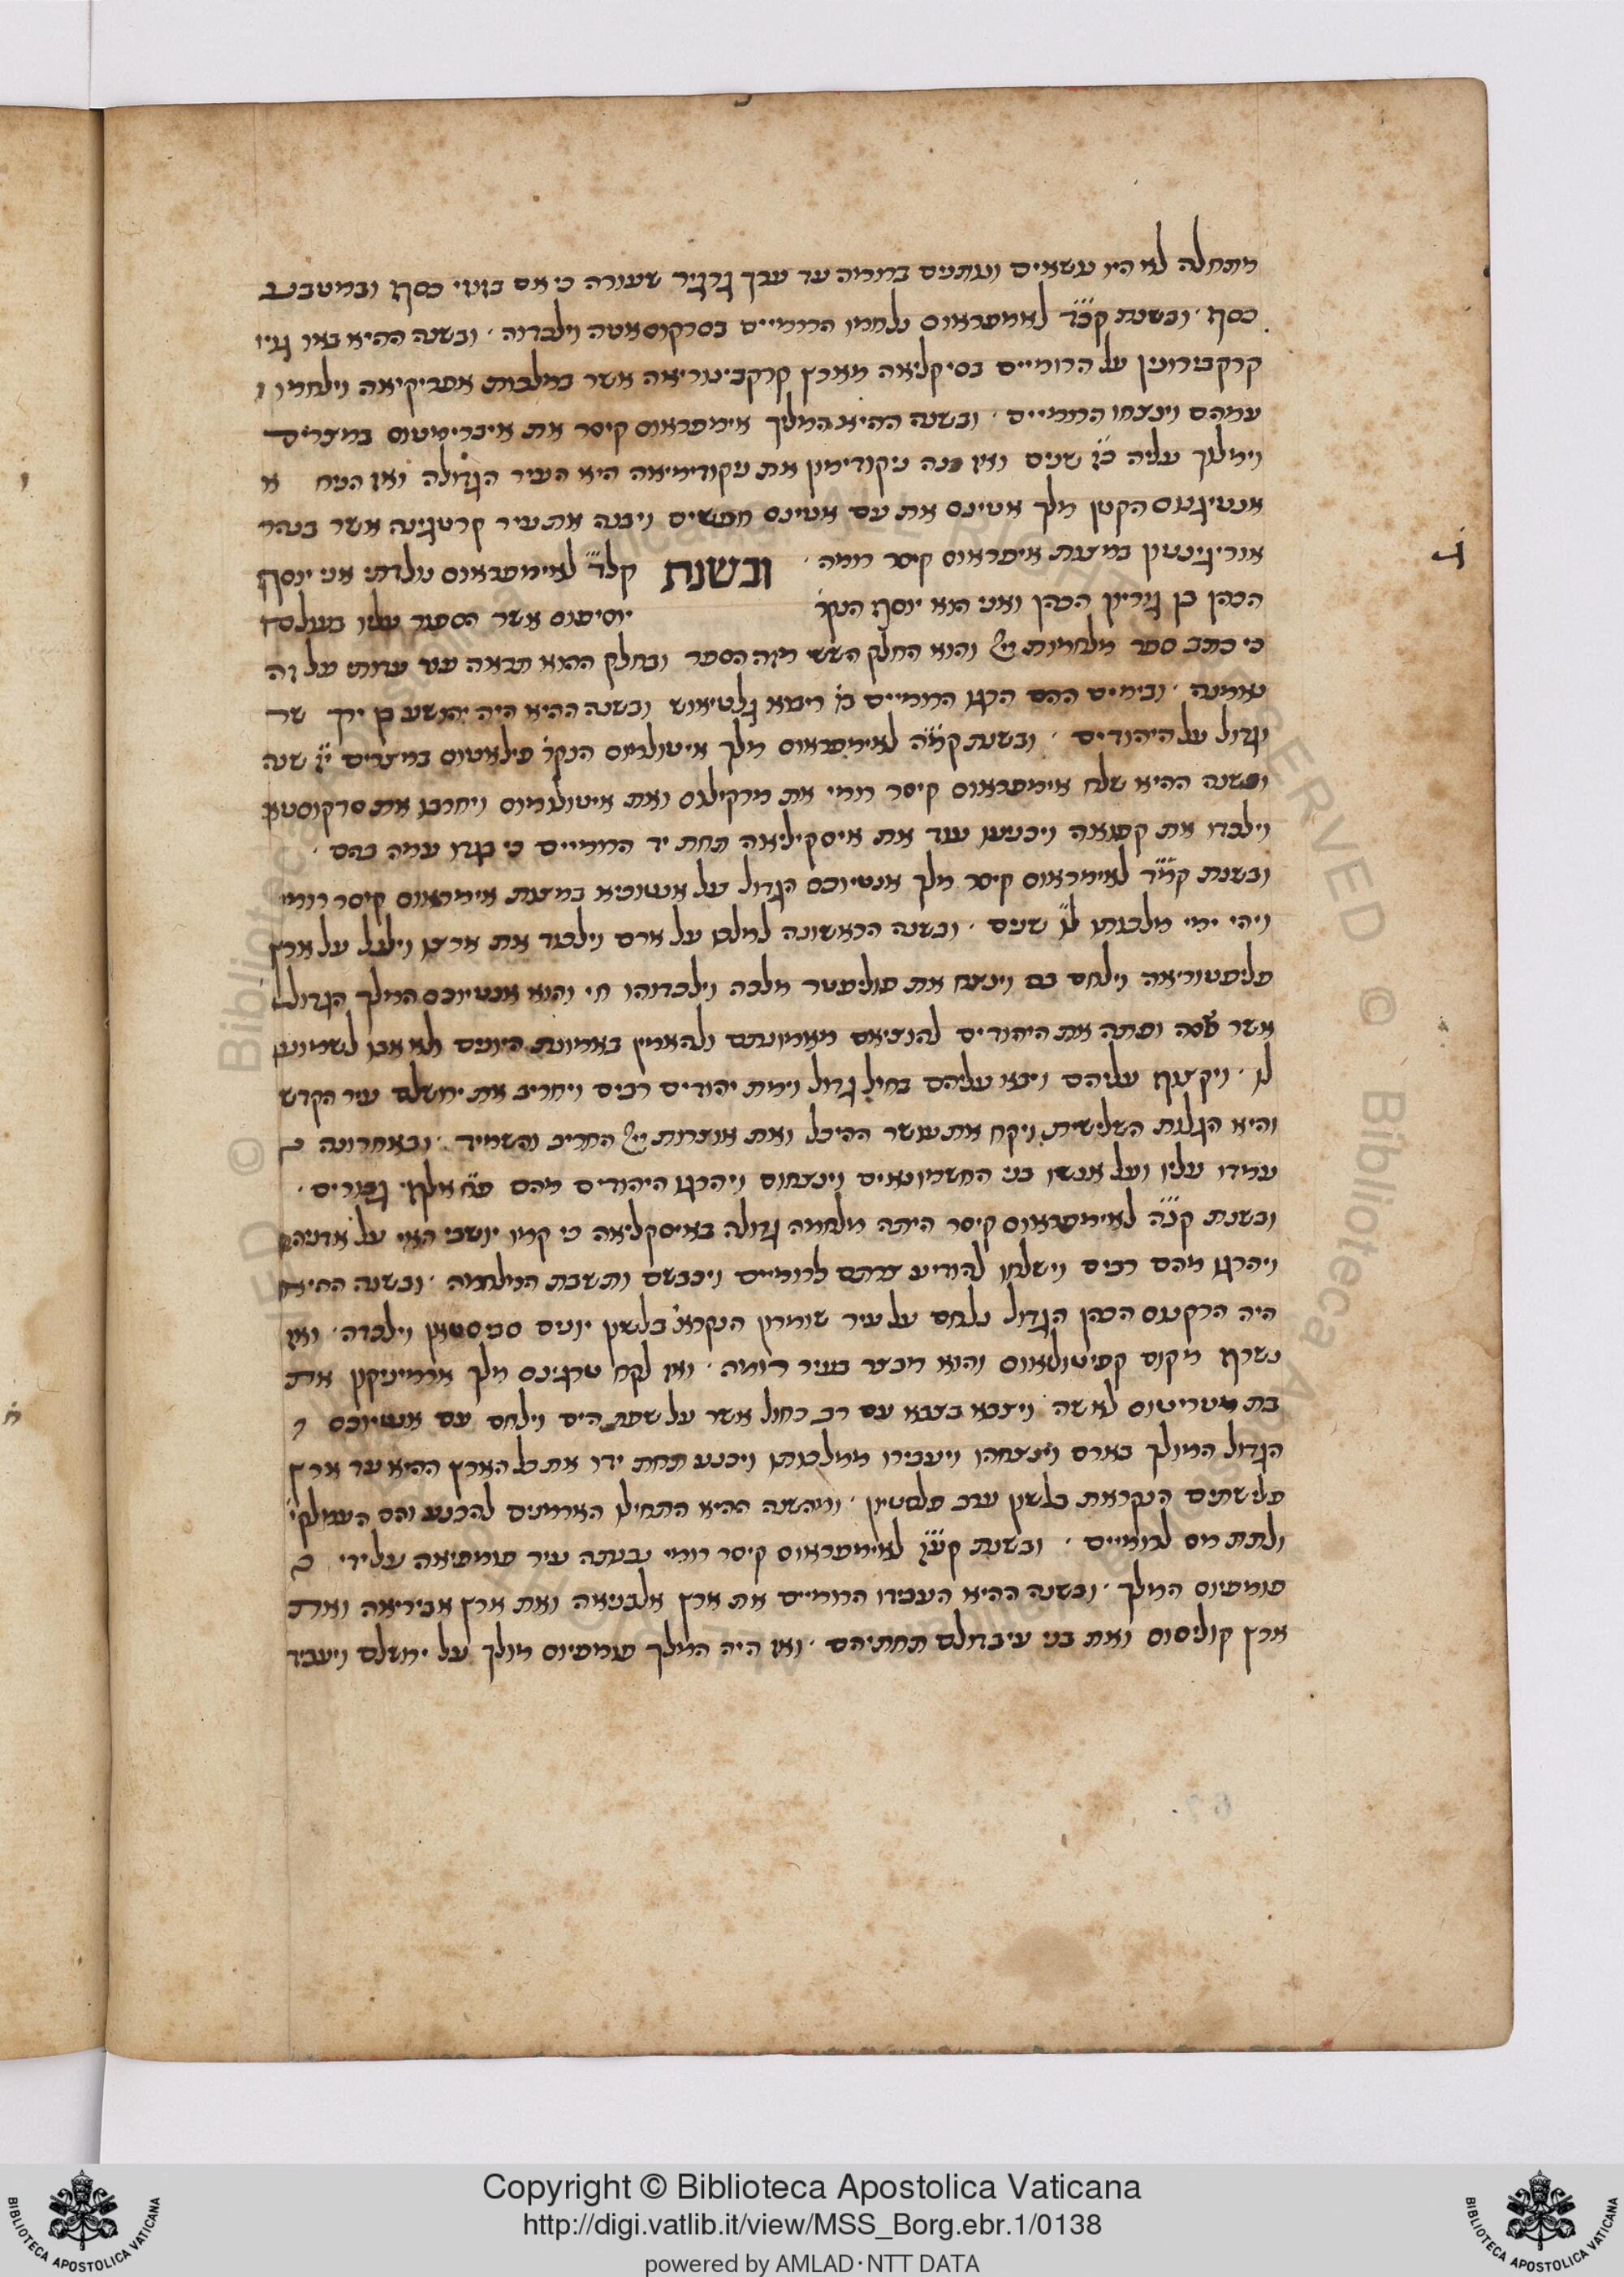 מתחלה לא היו עושאים ונותנים ברומה עד ערך גרגיר שעורה כי אם בזוזי כסף ובמטבע
כסף ׳ ובשנת קכ״ד לאימפראוס נלחמו הרומיים בסרקוסאטה וילכדוה ׳ ובשנה ההיא באו גויי
על הרומיים בסיקליאה מארץ אשר במלכות אפריקיאה וילחמו
עמהם וינצחו הרומיים ׳ ובשנה ההיא המליך אימפראוס קיסר את במצרים
וימלוך עליה כ״ז שנים ואז בנה ניקודימון את ניקודימיאה היא העיר הגדולה ואז הניח א
אנטיגונוס הקטן מלך אטינס את עם אטינס חפשים ויבנה את עיר קרטגינה אשר בנהר
במצות אימפראוס קיסר רומה ׳ ובשנת קל״ד לאימפראוס נולדתי אני יוסף
הכהן בן גוריון הכהן ואני הוא יוסף הנקר׳ יוסיפוס אשר הסופר עליו
כי כתב ספר מלחמות יי׳ והוא החלק הששי מזה הספר ובחלק ההוא תראה עוד עדות על זה
נאמנה ׳ ובימים ההם הרגו הרומיים ובשנה ההיא היה יהושע בן שר
וגדול על היהודים ׳ ובשנת קמ״ה לאימפראוס מלך איטולומיוס הנקר׳ פילאטוס במצרים י״ז שנה
ובשנה ההיא שלח אימפראוס קיסר רומי את מרקילוס ואת ויחריבו את סרקוסטא
וילכדו את ויכניעו עוד את איסקיליאה תחת יד הרומיים כי בגדו עמה בהם ׳
ובשנת לאימפראוס קיסר מלך אנטיוכס הגדול על אנטוכיא במצות אימפראוס קיסר רומי
ויהי ימי מלכותו ל״ו שנים ׳ ובשנה הראשונה למלכו על ארם וילכוד את ארצו וילך על ארץ
וילחם בם וינצח את מלכה וילכדוהו חי והוא אנטיוכס המלך הגדול
אשר נסה ופתה את היהודים להוציאם מאמונתם ולהאמין באמונת היונים ולא אבו לשמוע
לו ׳ ויקצוף עליהם ויבא עליהם בחיל גדול וימת יהודים רבים ויחריב את ירושלם עיר הקדש
והיא הגלות השלישית ויקח את עושר ההיכל ואת אוצרות יי׳ החריב והשמיד ׳ ובאחרונה
עמדו עליו ועל אנשיו בני החשמונאים וינצחום ויהרגו היהודים מהם אלף גבורים ׳
ובשנת קנ״ה לאימפראוס קיסר היתה מלחמה גדולה באיסקליאה כי קמו יושבי האי על אדוניהם
ויהרגו מהם רבים וישלחו להודיע צרתם לרומיים ויכבשם ותשבת המלחמה ׳ ובשנה ההיא
היה הרקנוס הכהן הגדול נלחם על עיר שומרון הנקרא׳ בלשון יונים סבסטאן וילכדה ׳ ואז
נשרף מקום קפיטולאוס והוא מבצר בעיר רומה ׳ ואז לקח טרגינס מלך ארמיניקון את
בת מטריטוס לאשה ׳ ויצבא בצבא עם רב כחול אשר על שפת הים וילחם עם אנטיוכס
הגדול המולך בארם וינצחהו ויעבירו ממלכותו ויכנע תחת ידו את כל הארץ ההיא עד ארץ
פלישתים הנקראת בלשון ערב פלסטין ׳ ומהשנה ההיא התחילו הארמנים להכנע והם העמלקי׳
ולתת מס לרומיים ׳ ובשנת לאימפראוס קיסר רומי נבנתה עיר פומפיאה על ידי
פומפיוס המלך ׳ ובשנה ההיא העבידו הרומיים את ארץ אלבניאה ואת ארץ אביריאה ואת
ארץ קוליסוס ואת בני תחתיהם ׳ ואז היה המלך פומפיוס מולך על ירושלם ויעבד
Copyright © Biblioteca Apostolica Vaticana
http://digi.vatlib.it/view/MSS_Borg.ebr.1/0138
powered by AMLAD·NTT DATA